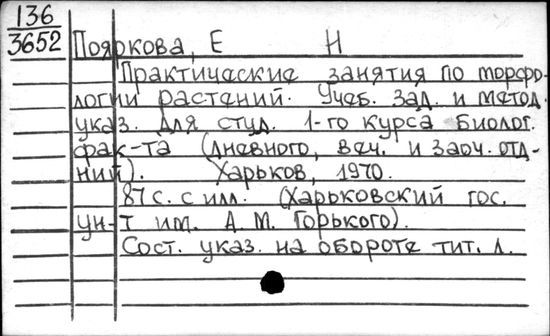 136
3652
Пояркова, Е Н
Практические занятия по морфо-
логии растений. Учеб. зад. и метод.
указ. для студ. 1-го курса биолог.
фак-та (дневного, веч. и заоч. отд-
ний). Харьков, 1970.
87 с. с илл. (Харьковский гос.
ун-т им. А. М. Горького).
Сост. указ. на обороте тит. л.